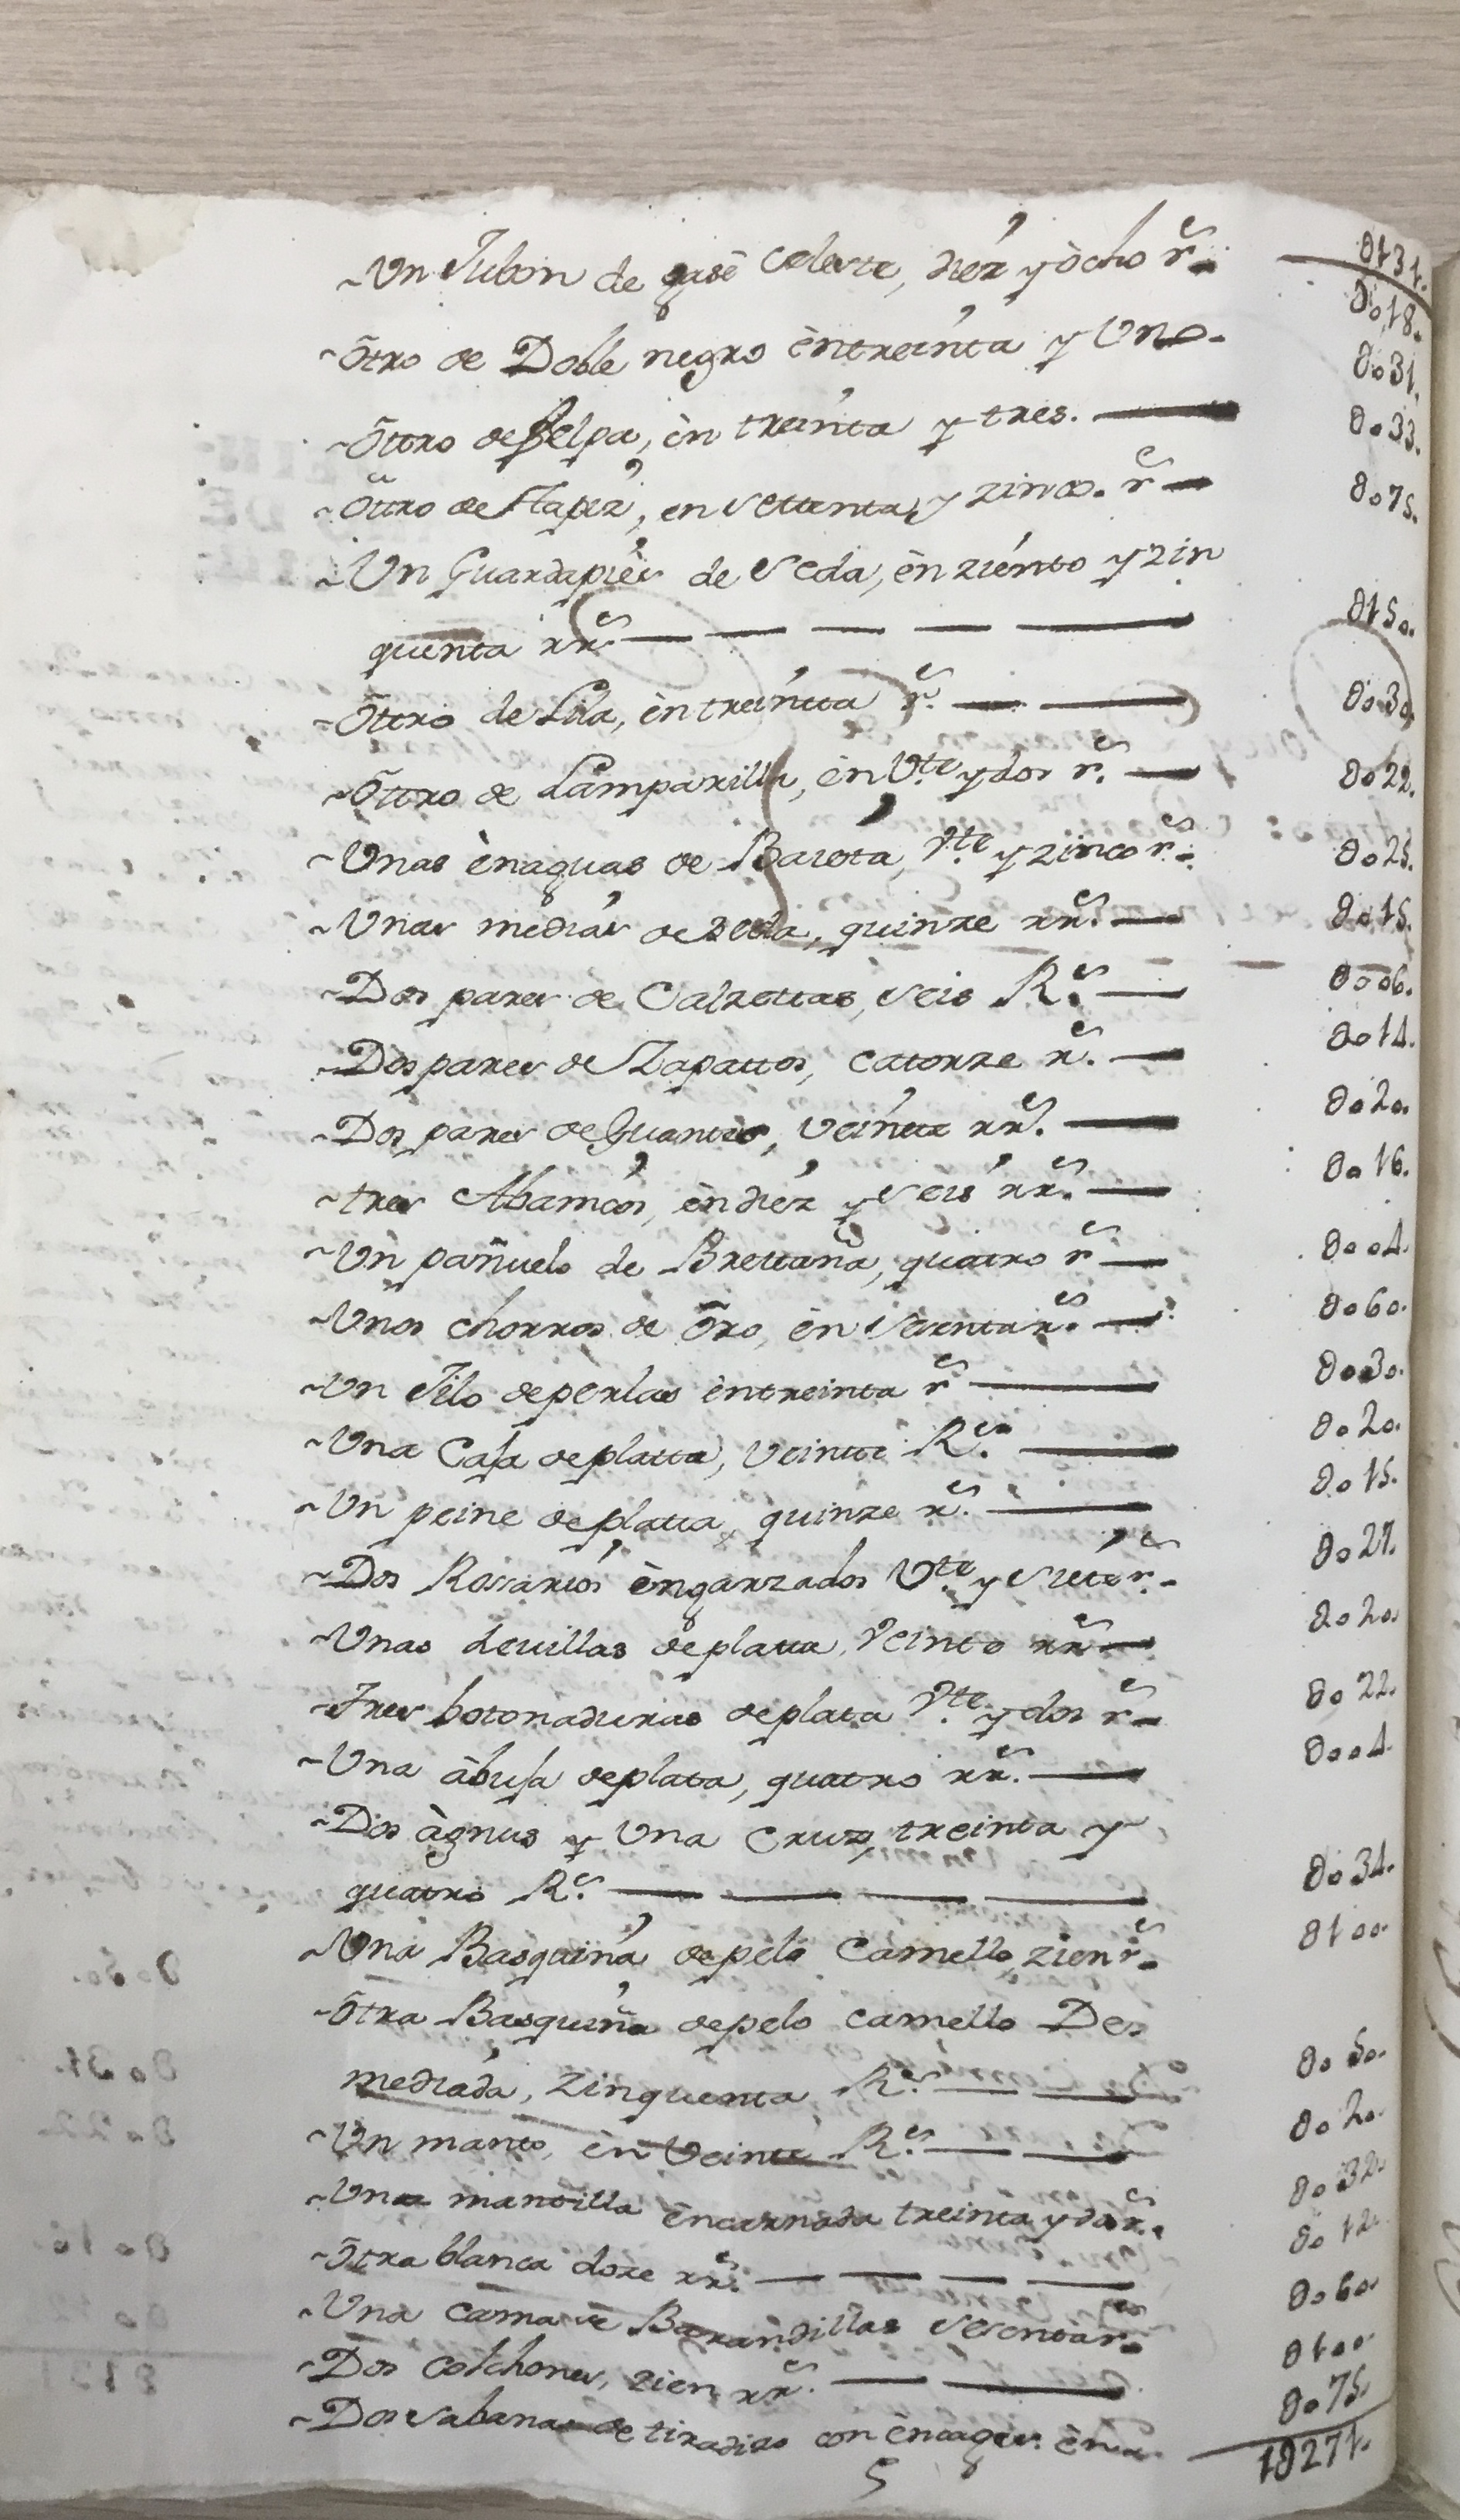 0131.
~Un Jubon de gasè Celeste, diez y òcho r.ˢ 0018.
~Òtro de Doble negro èntreinta y Uno. 0031.
~Òttro de felpa, èn treinta y tres. 0033.
~Òttro de Tapiz, en settenta, y zinco. r.ˢ 0075.
~Un Guardapiès de seda, èn ziento y zin
quenta rr.ˢ 0150.
~Òttro de Lila, èn treintta r.ˢ 0030.
~Òttro de Lamparilla, èn V.te y dos r.ˢ 0022.
~Unas ènaguas de Baieta, V.te y zinco r.ˢ 0025.
~Unas medias de zeda, quinze rr.ˢ 0015.
~Dos pares de Calzettas, seis R.ˢ 0006.
~Dos pares de Zapattos, catorze r.ˢ 0014.
~Dos pares de Guantes, Veintte rr.ˢ 0020.
~tres Abanicos, èn diez y seis rr.ˢ 0016.
~Un pañuelo de Brettaña, quatro r.ˢ 0004.
~Unos chorros de Òro, èn sesenta r.ˢ 0060.
~Un Jilo de perlas èntreinta r.ˢ 0030.
~Una Caja de platta, Veintte R.ˢ 0020.
~Un peine de platta, quinze r.ˢ 0015.
~Dos Rosarios èngarzados V.te y siete r.ˢ 0027.
~Unas devillas de platta, Veinte rr.ˢ 0020.
~Tres botonaduras de plata V.te y dos r.ˢ 0022.
~Una àbuja de plata, quatro rr.ˢ 0004.
~Dos àgnus y Una Cruz, treinta y
quatro R.ˢ 0034.
~Una Basquiña de pelo Camello, zien r.ˢ 0100.
~Òtra Basquiña de pelo camello De
mediada, zinquenta R.ˢ 0050.
~Un manto, èn Veinte R.ˢ 0020.
~Una mantilla èncarnada treinta y dos r.ˢ 0032.
~Òtra blanca doze rr.ˢ 0012.
~Una cama de Barandillas sesenta r.ˢ 0060.
~Dos colchones, zien rr.ˢ 0100.
~Dos sabanas de tiradizo con èncages. èn 0075.
10271.